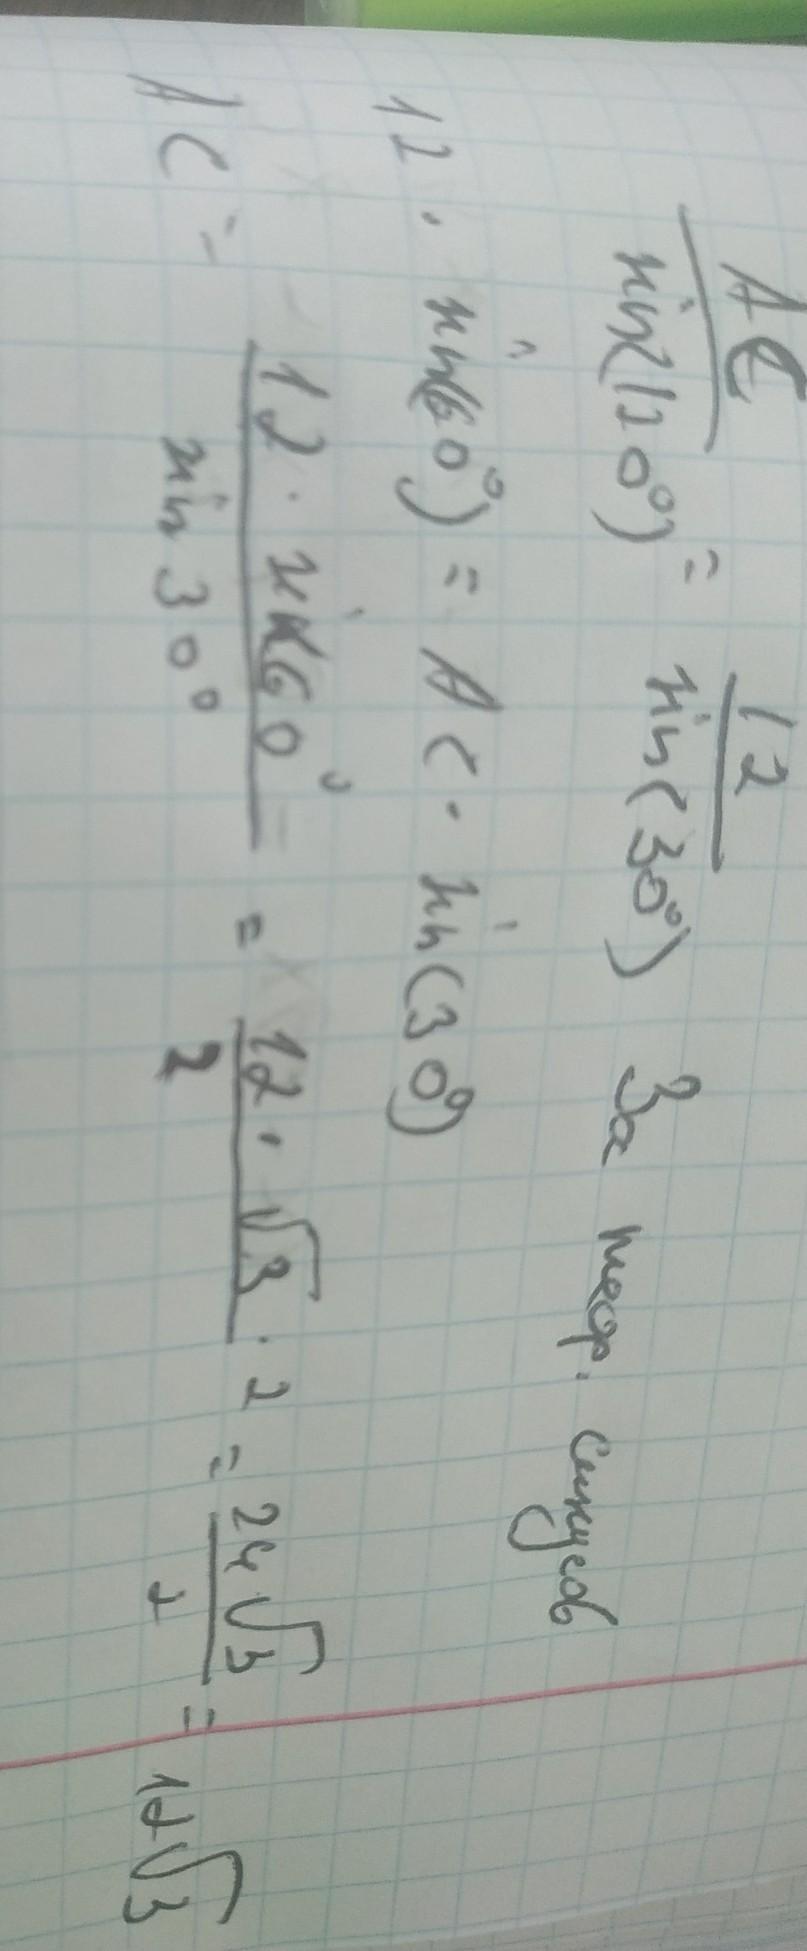 AC / sin(120°) = 12 / sin(30°) За теор. синусов
12 · sin(60°) = AC · sin(30°)
AC = 12 · sin60° / sin30° = 12 · √3 / 2 · 2 = 24√3 / 2 = 12√3